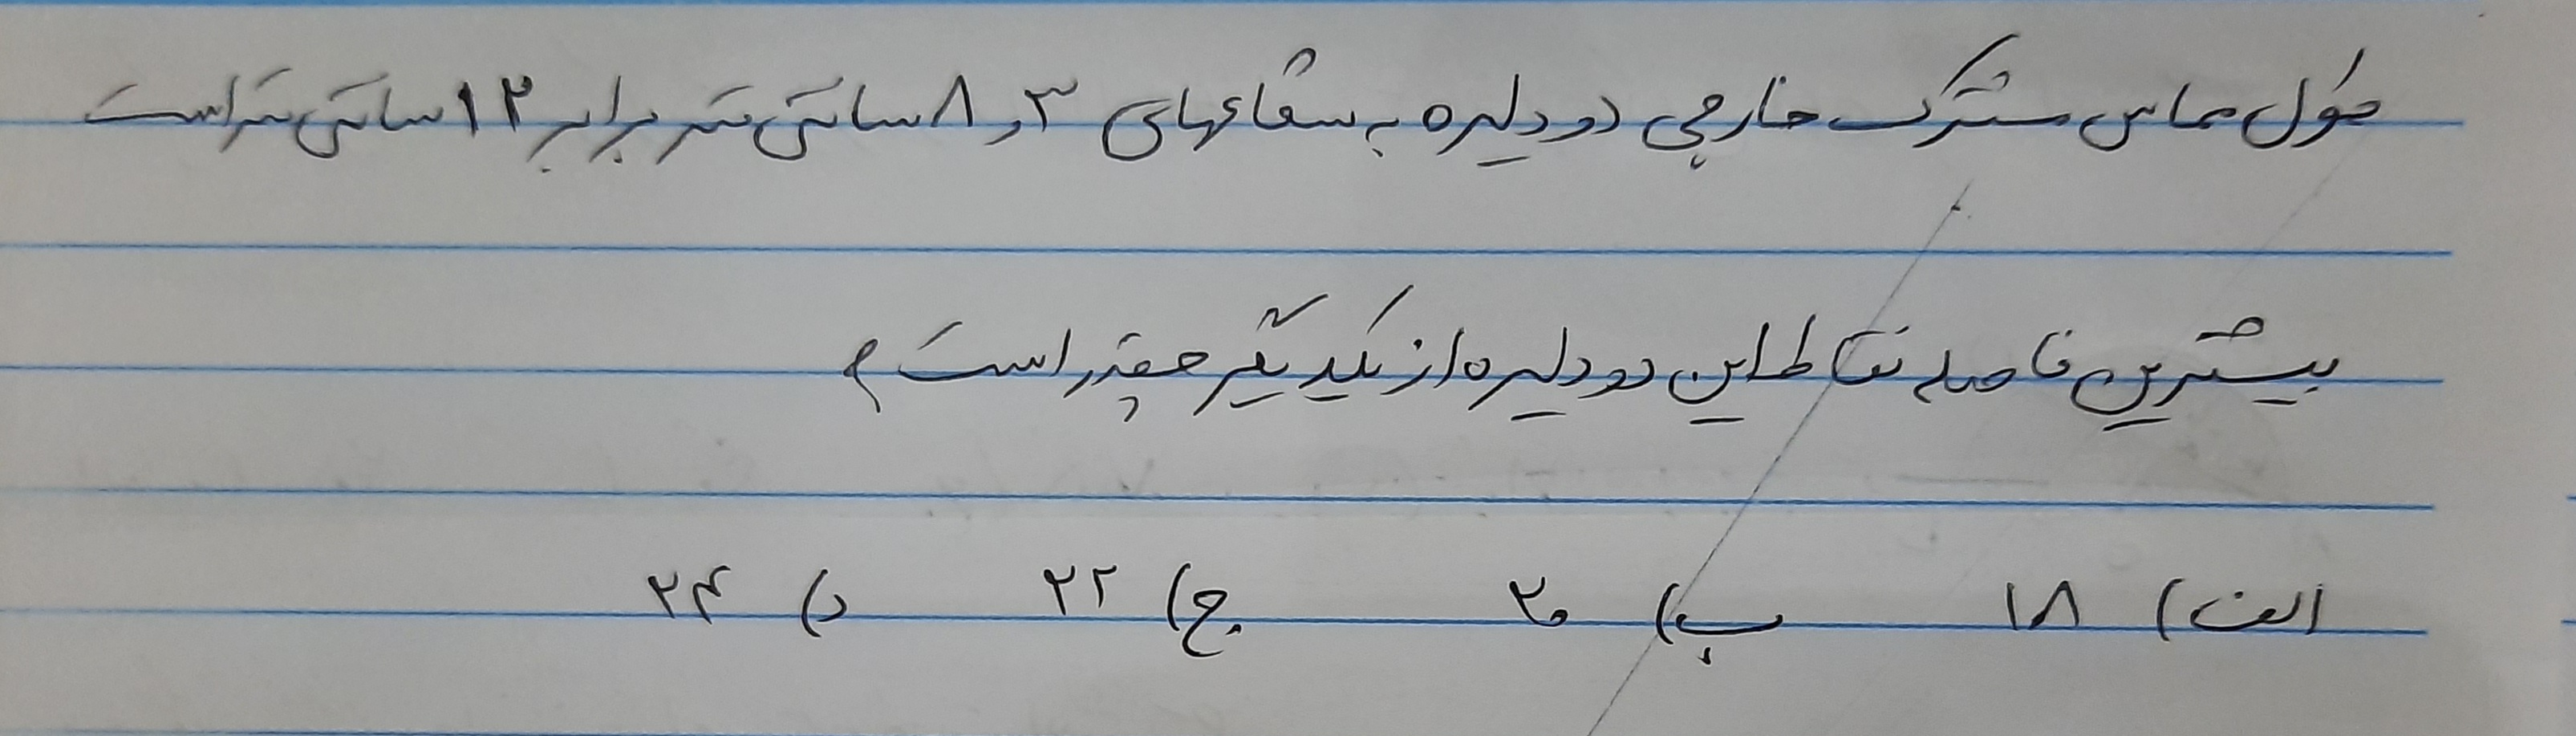 طول مماس مشترک خارجی دو دایره به شعاعهای ۳ و ۸ سانتی متر برابر ۱۲ سانتی متر است
بیشترین فاصله نقاط این دو دایره از یکدیگر چقدر است؟
الف) ۱۸ ب) ۲۰ ج) ۲۲ د) ۲۴